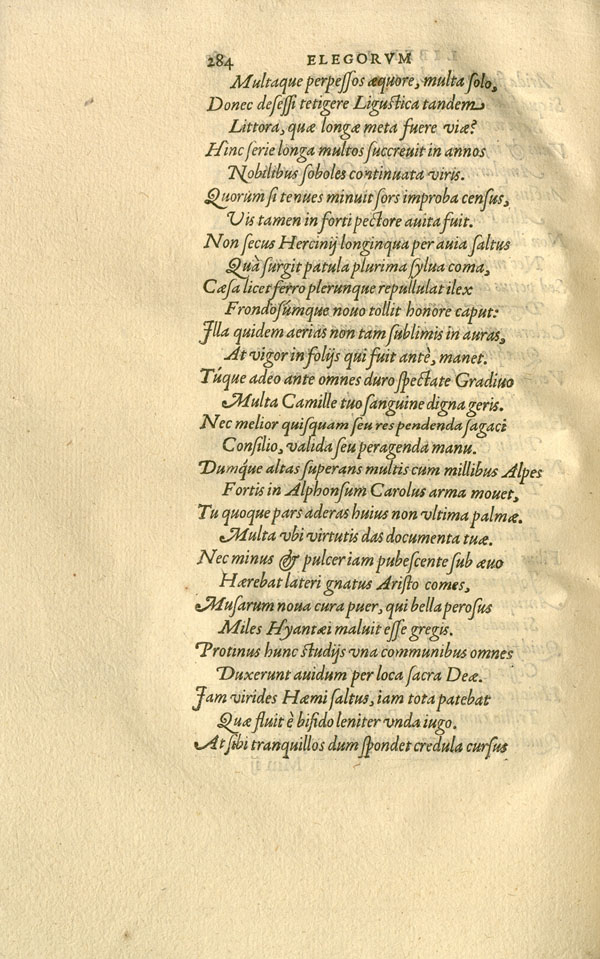 284 ELEGORVM
Multaque perpessos æquore, multa solo,
Donec defessi tetigere Ligustica tandem
Littora, quæ longæ meta fuere viæ?
Hinc serie longa multos succreuit in annos
Nobilibus soboles continuata viris.
Quorum si tenues minuit sors improba census,
Vis tamen in forti pectore auita fuit.
Non secus Hercinij longinqua per auia saltus
Quà surgit patula plurima sylua coma,
Cæsa licet ferro plerunque repullulat ilex
Frondosúmque nouo tollit honore caput:
Illa quidem aerias non tam sublimis in auras,
At vigor in folijs qui fuit antè, manet.
Túque adeo ante omnes duro spectate Gradiuo
Multa Camille tuo sanguine digna geris.
Nec melior quisquam seu res pendenda sagaci
Consilio, valida seu peragenda manu.
Dumq́ue altas superans multis cum millibus Alpes
Fortis in Alphonsum Carolus arma mouet,
Tu quoque pars aderas huius non vltima palmæ.
Multa vbi virtutis das documenta tuæ.
Nec minus & pulcer iam pubescente sub æuo
Hærebat lateri gnatus Aristo comes,
Musarum noua cura puer, qui bella perosus
Miles Hyantæi maluit esse gregis.
Protinus hunc studijs vna communibus omnes
Duxerunt auidum per loca sacra Deæ.
Jam virides Hæmi saltus, iam tota patebat
Quæ fluit è bifido leniter vnda iugo.
At sibi tranquillos dum spondet credula cursus